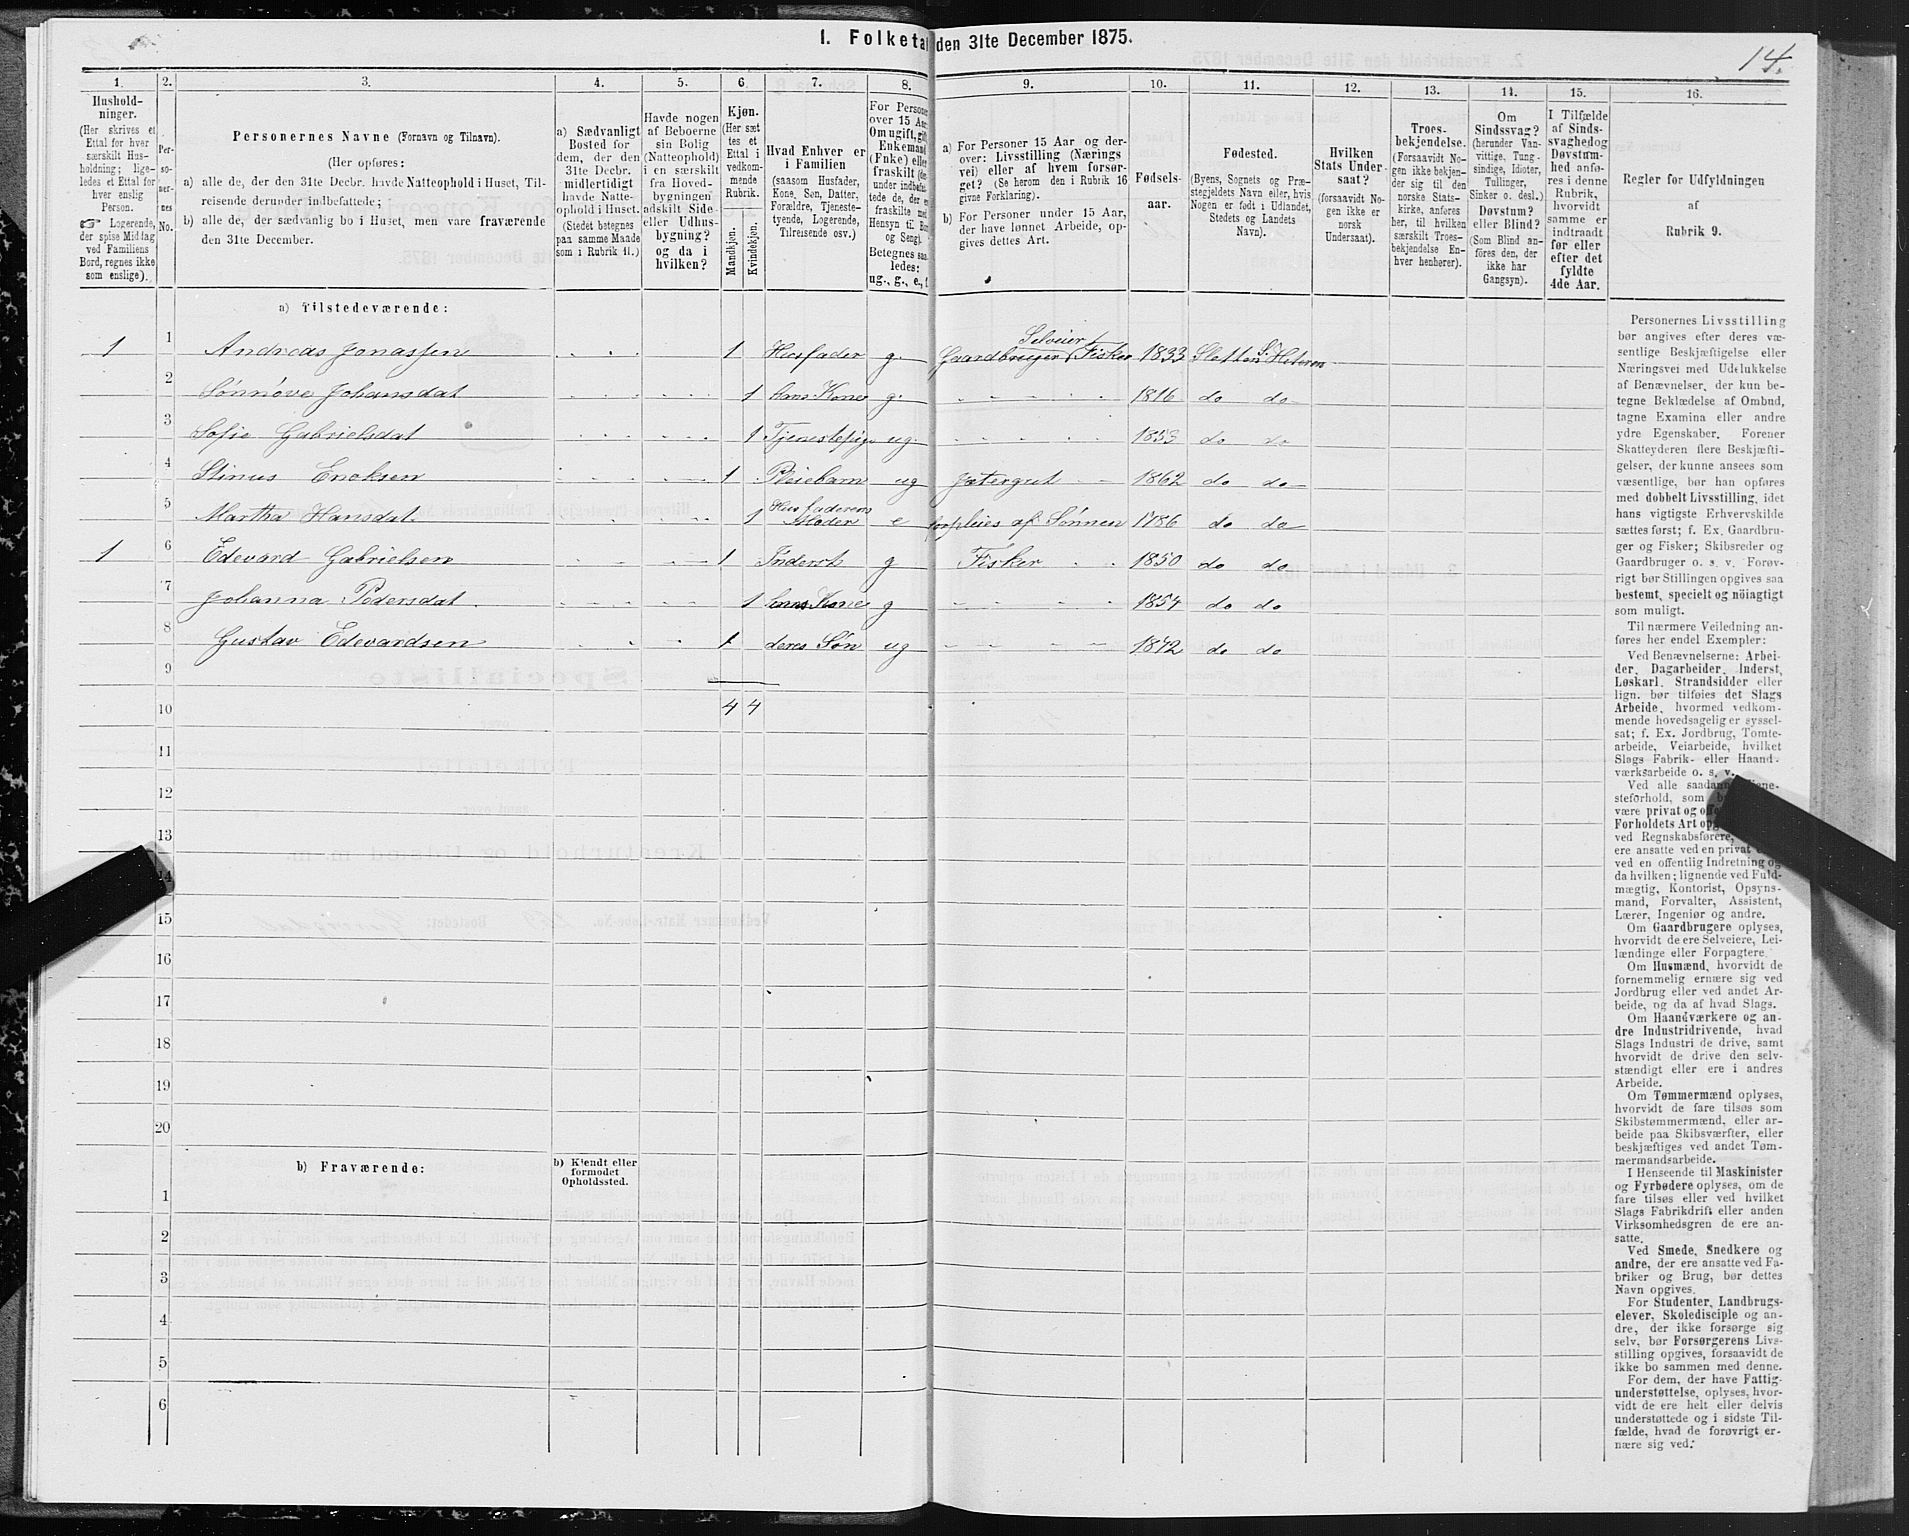 I. Folketal den 31te December 1875.
14.
1. 2. 3. 4. 5. 6. 7. 8. 9. 10. 11. 12. 13. 14. 15. 16.
Hushold-
ninger.
(Her skrives et
Ettal for hver
særskilt Hus-
holdning; lige-
ledes et Ettal for
hver enslig
Person.
Logerende,
der spise Middag
ved Familiens
Bord, regnes ikke
som enslige).
Per-
so-
ner-
nes
No.
Personernes Navne (Fornavn og Tilnavn).
(Her opføres:
a) alle de, der den 31te Decbr. havde Natteophold i Huset, Til-
reisende derunder indbefattede;
b) alle de, der sædvanlig bo i Huset, men vare fraværende
den 31te December.
a) Sædvanligt
Bosted for
dem, der den
31te Decbr.
midlertidigt
havde Natte-
ophold i Huset.
(Stedet betegnes
paa samme Maade
som i Rubrik 11.)
Havde nogen
af Beboerne
sin Bolig
(Natteophold)
i en særskilt
fra Hoved-
bygningen
adskilt Side-
eller Udhus-
bygning?
og da i
hvilken?
Kjøn.
(Her sæt
tes et
Ettal i
vedkom-
mende
Rubrik.
Mandkjøn.
Kvindekjøn.
Hvad Enhver er
i Familien
(saasom Husfader,
Kone, Søn, Datter,
Forældre, Tjeneste-
tyende, Logerende,
Tilreisende osv.)
For Personer
over 15 Aar
Om ugift, gift
Enkemand
(Enke) eller
fraskilt
ug., g., e., f.
a) For Personer 15 Aar og der-
over: Livsstilling (Nærings
vei) eller af hvem forsør-
get? (Se herom den i Rubrik 16
givne Forklaring).
b) For Personer under 15 Aar,
der have lønnet Arbeide, op-
gives dettes Art.
Fødsels-
aar.
Fødested.
(Byens, Sognets og Præ-
stegjeldets Navn eller, hvis
Nogen er født i Udlandet,
Stedets og Landets
Navn).
Hvilken
Stats Under-
saat?
(forsaavidt No-
gen ikke er
norsk
Undersaat).
Troes-
bekjendelse.
(Forsaavidt No-
gen ikke bekjen-
der sig til den
norske Stats-
kirke, anføres
her, til hvilken
særskilt Troes-
bekjendelse En-
hver henhører).
Om
Sindssvag?
(herunder Van-
vittige, Tung-
sindige, Idioter,
Tullinger,
Sinker o. desl.)
Døvstum?
eller Blind?
(Som Blind an-
føres den, der
ikke har
Gangsyn).
I Tilfælde
af Sinds-
svaghed og
Døvstum-
hed anfø-
res i denne
Rubrik,
hvorvidt
samme er
indtraadt
før eller
efter det
fyldte
4de Aar.
Regler for Udfyldningen
af
Rubrik 9.
a) Tilstedeværende:
1 1 Andreas Jonassen 1 Husfader g. Selveier, Gaardbruger, Fisker 1833 Sletten S. Heteren
2 Sønnøve Johansdat 1 hans Kone g. 1816 do do
3 Sofie Gabrielsdat 1 Tjenestepige ug. 1853 do do
4 Stinus Enoksen 1 Pleiebarn ug Jætergut 1862 do do
5 Martha Hansdat. 1 Husfaderens Moder e forpleies af Sønnen 1786 do do
1 6 Edevard Gabrielsen 1 Inderst g Fisker 1850 do do
7 Johanna Pedersdat 1 hans Kone g 1854 do do
8 Gustav Edevardsen 1 deres Søn ug 1872 do do
9
10 4 4
11
12
13
14
15
16
17
18
19
20
b) Fraværende:
b) Kjendt eller
formodet
Opholdssted.
1
2
3
4
5
6
Personernes Livsstilling
bør angives efter deres væ-
sentlige Beskjæftigelse eller
Næringsvei med Udelukkelse
af Benævnelser, der kun be-
tegne Beklædelse af Ombud,
tagne Examina eller andre
ydre Egenskaber. Forener
Skatteyderen flere Beskjæfti-
gelser, der kunne ansees som
væsentlige, bør han opføres
med dobbelt Livsstilling, idet
hans vigtigste Erhvervskilde
sættes først; f. Ex. Gaardbru-
ger og Fisker; Skibsreder og
Gaardbruger o. s. v. Forøv-
rigt bør Stillingen opgives saa
bestemt, specielt og nöiagtigt
som muligt.
Til nærmere Veiledning an-
føres her endel Exempler:
Ved Benævnelserne: Arbei-
der, Dagarbeider, Inderst,
Løskarl, Strandsidder eller
lign. bør tilføies det Slags
Arbeide, hvormed vedkom-
mende hovedsagelig er syssel-
sat; f. Ex. Jordbrug, Tomte-
arbeide, Veiarbeide, hvilket
Slags Fabrik- eller Haand-
værksarbeide o. s. v.
Ved alle saadanne Tjene-
steforhold, som
være privat og
Forholdets Art
ved Regnskabsførere,
ere ansatte ved en privat
ved en offentlig Indretning og
da hvilken; lignende ved Fuld-
mægtig, Kontorist, Opsyns-
mand, Forvalter, Assistent,
Lærer, Ingeniør og andre.
Om Gaardbrugere oplyses,
hvorvidt de ere Selveiere, Lei-
lændinge eller Forpagtere.
Om Husmænd, hvorvidt de
fornemmelig ernære sig ved
Jordbrug eller ved andet Ar-
beide, og da af hvad Slags.
Om Haandværkere og an-
dre Industridrivende, hvad
Slags Industri de drive, samt
hvorvidt de drive den selv-
stændigt eller ere i andres
Arbeide.
Om Tømmermænd oplyses,
hvorvidt de fare tilsøs som
Skibstømmermænd, eller ar-
beide paa Skibsværfter, eller
beskjæftiges ved andet Tøm-
mermandsarbeide.
I Henseende til Maskinister
og Fyrbødere oplyses, om de
fare tilsøs eller ved hvilket
Slags Fabrikdrift eller anden
Virksomhedsgren de ere an-
satte.
Ved Smede, Snedkere og
andre, der ere ansatte ved Fa-
briker og Brug, bør dettes
Navn opgives.
For Studenter, Landbrugs-
elever, Skoledisciple og an-
dre, der ikke forsørge sig
selv, bør Forsørgerens Livs-
stilling opgives, forsaavidt de
ikke bo sammen med denne.
For dem, der have Fattig-
understøttelse, oplyses, hvor-
vidt de ere helt eller delvis
understøttede og i sidste Til-
fælde, hvad de forøvrigt er-
nære sig ved.